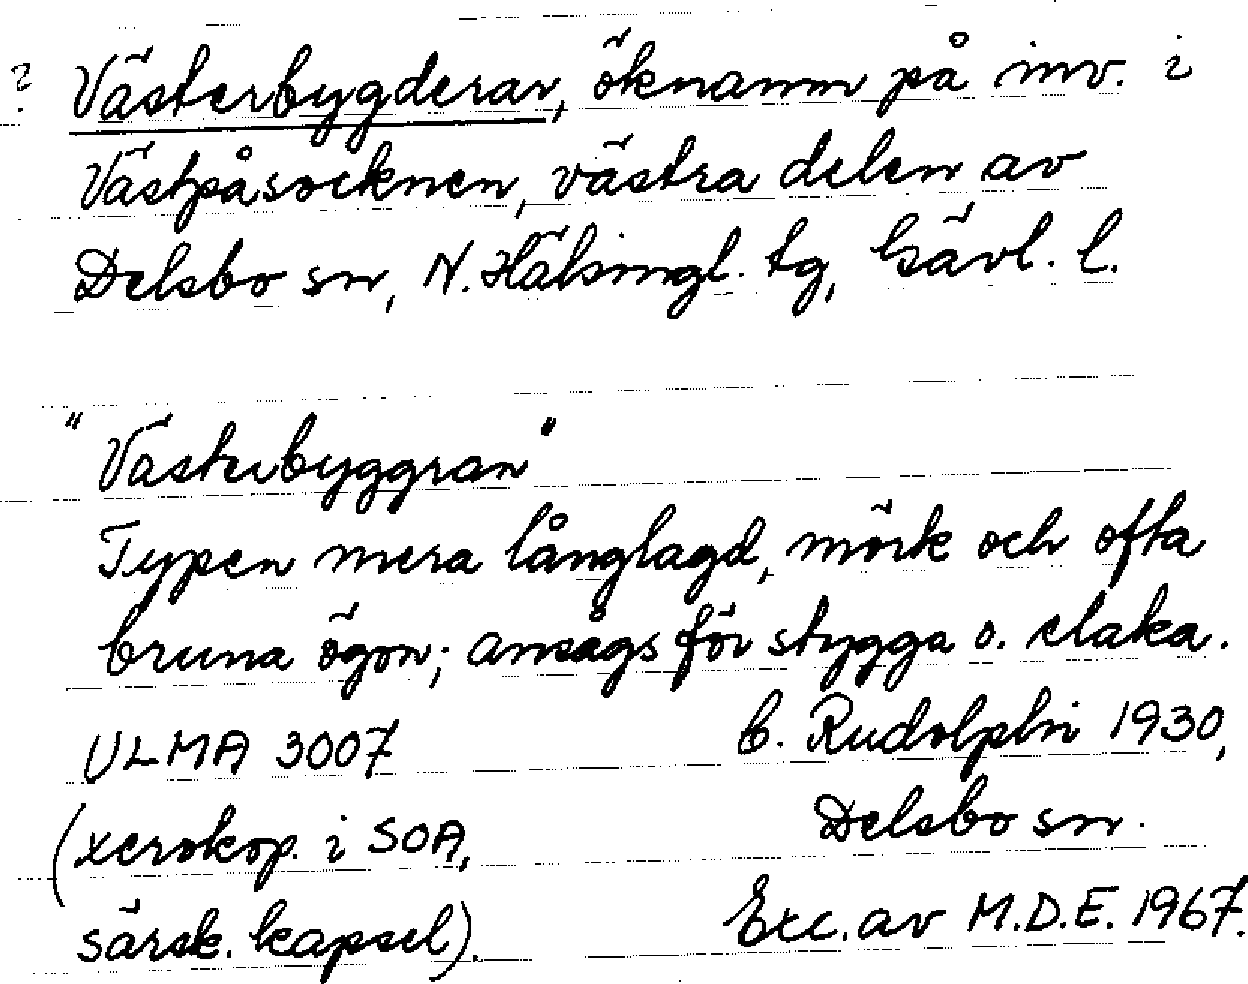 ? Västerbygderav, öknamn på inv. i
Västpåsocknen, västra delen av
Delsbo sn, N. Hälsingl. tg, Gävl. l.
"Västerbyggran"
Typen mera långlagd, mörk och ofta
bruna ögon; ansågs för stygga o. elaka.
ULMA 3007 C. Rudolphi 1930,
(xerokop. i SOA, Delsbo sn.
särsk. kapsel). Exc. av M.D.E. 1967.